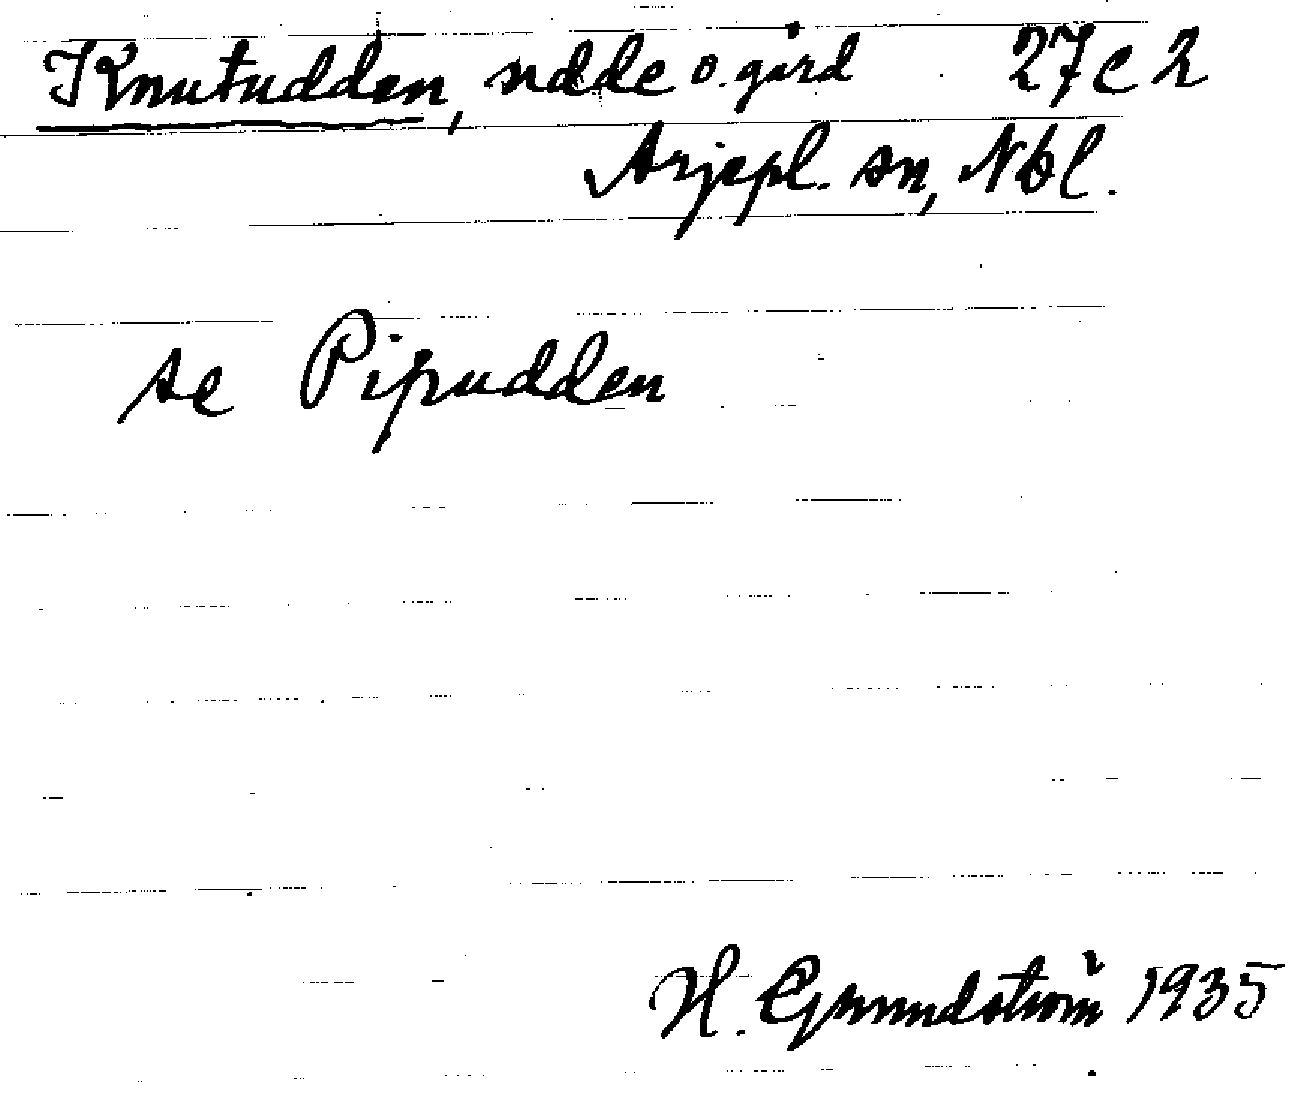 Knutudden, udde o. gård 27 c 2
Arjepl. sn, Nbl.
se Pipudden
H. Grundström 1935